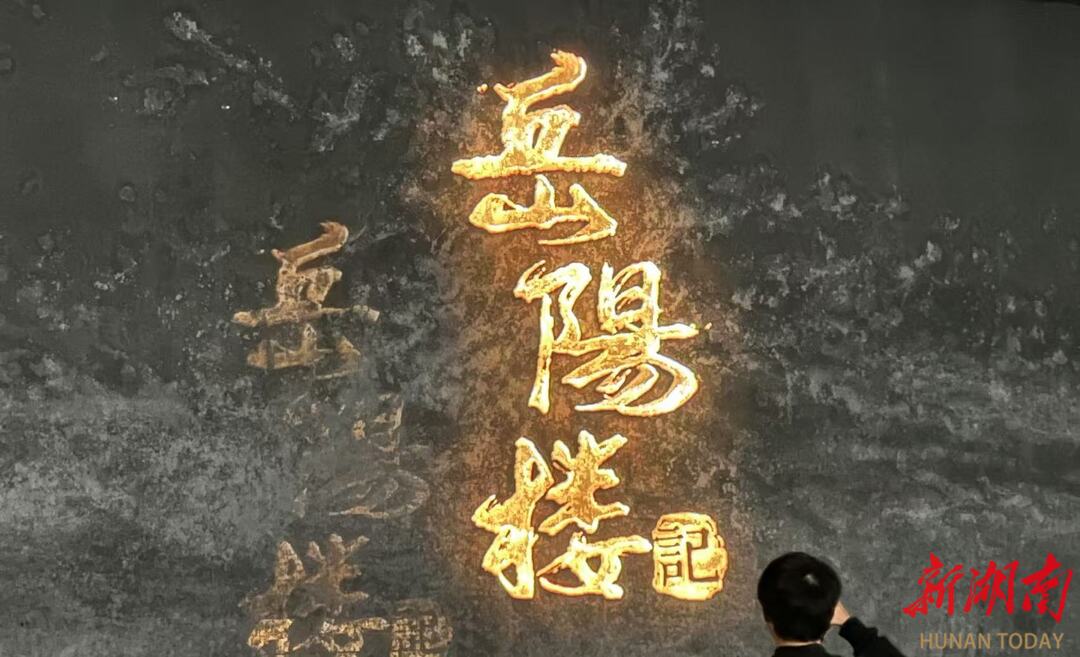 岳陽楼
記
岳陽楼
記
新湖南
HUNAN TODAY